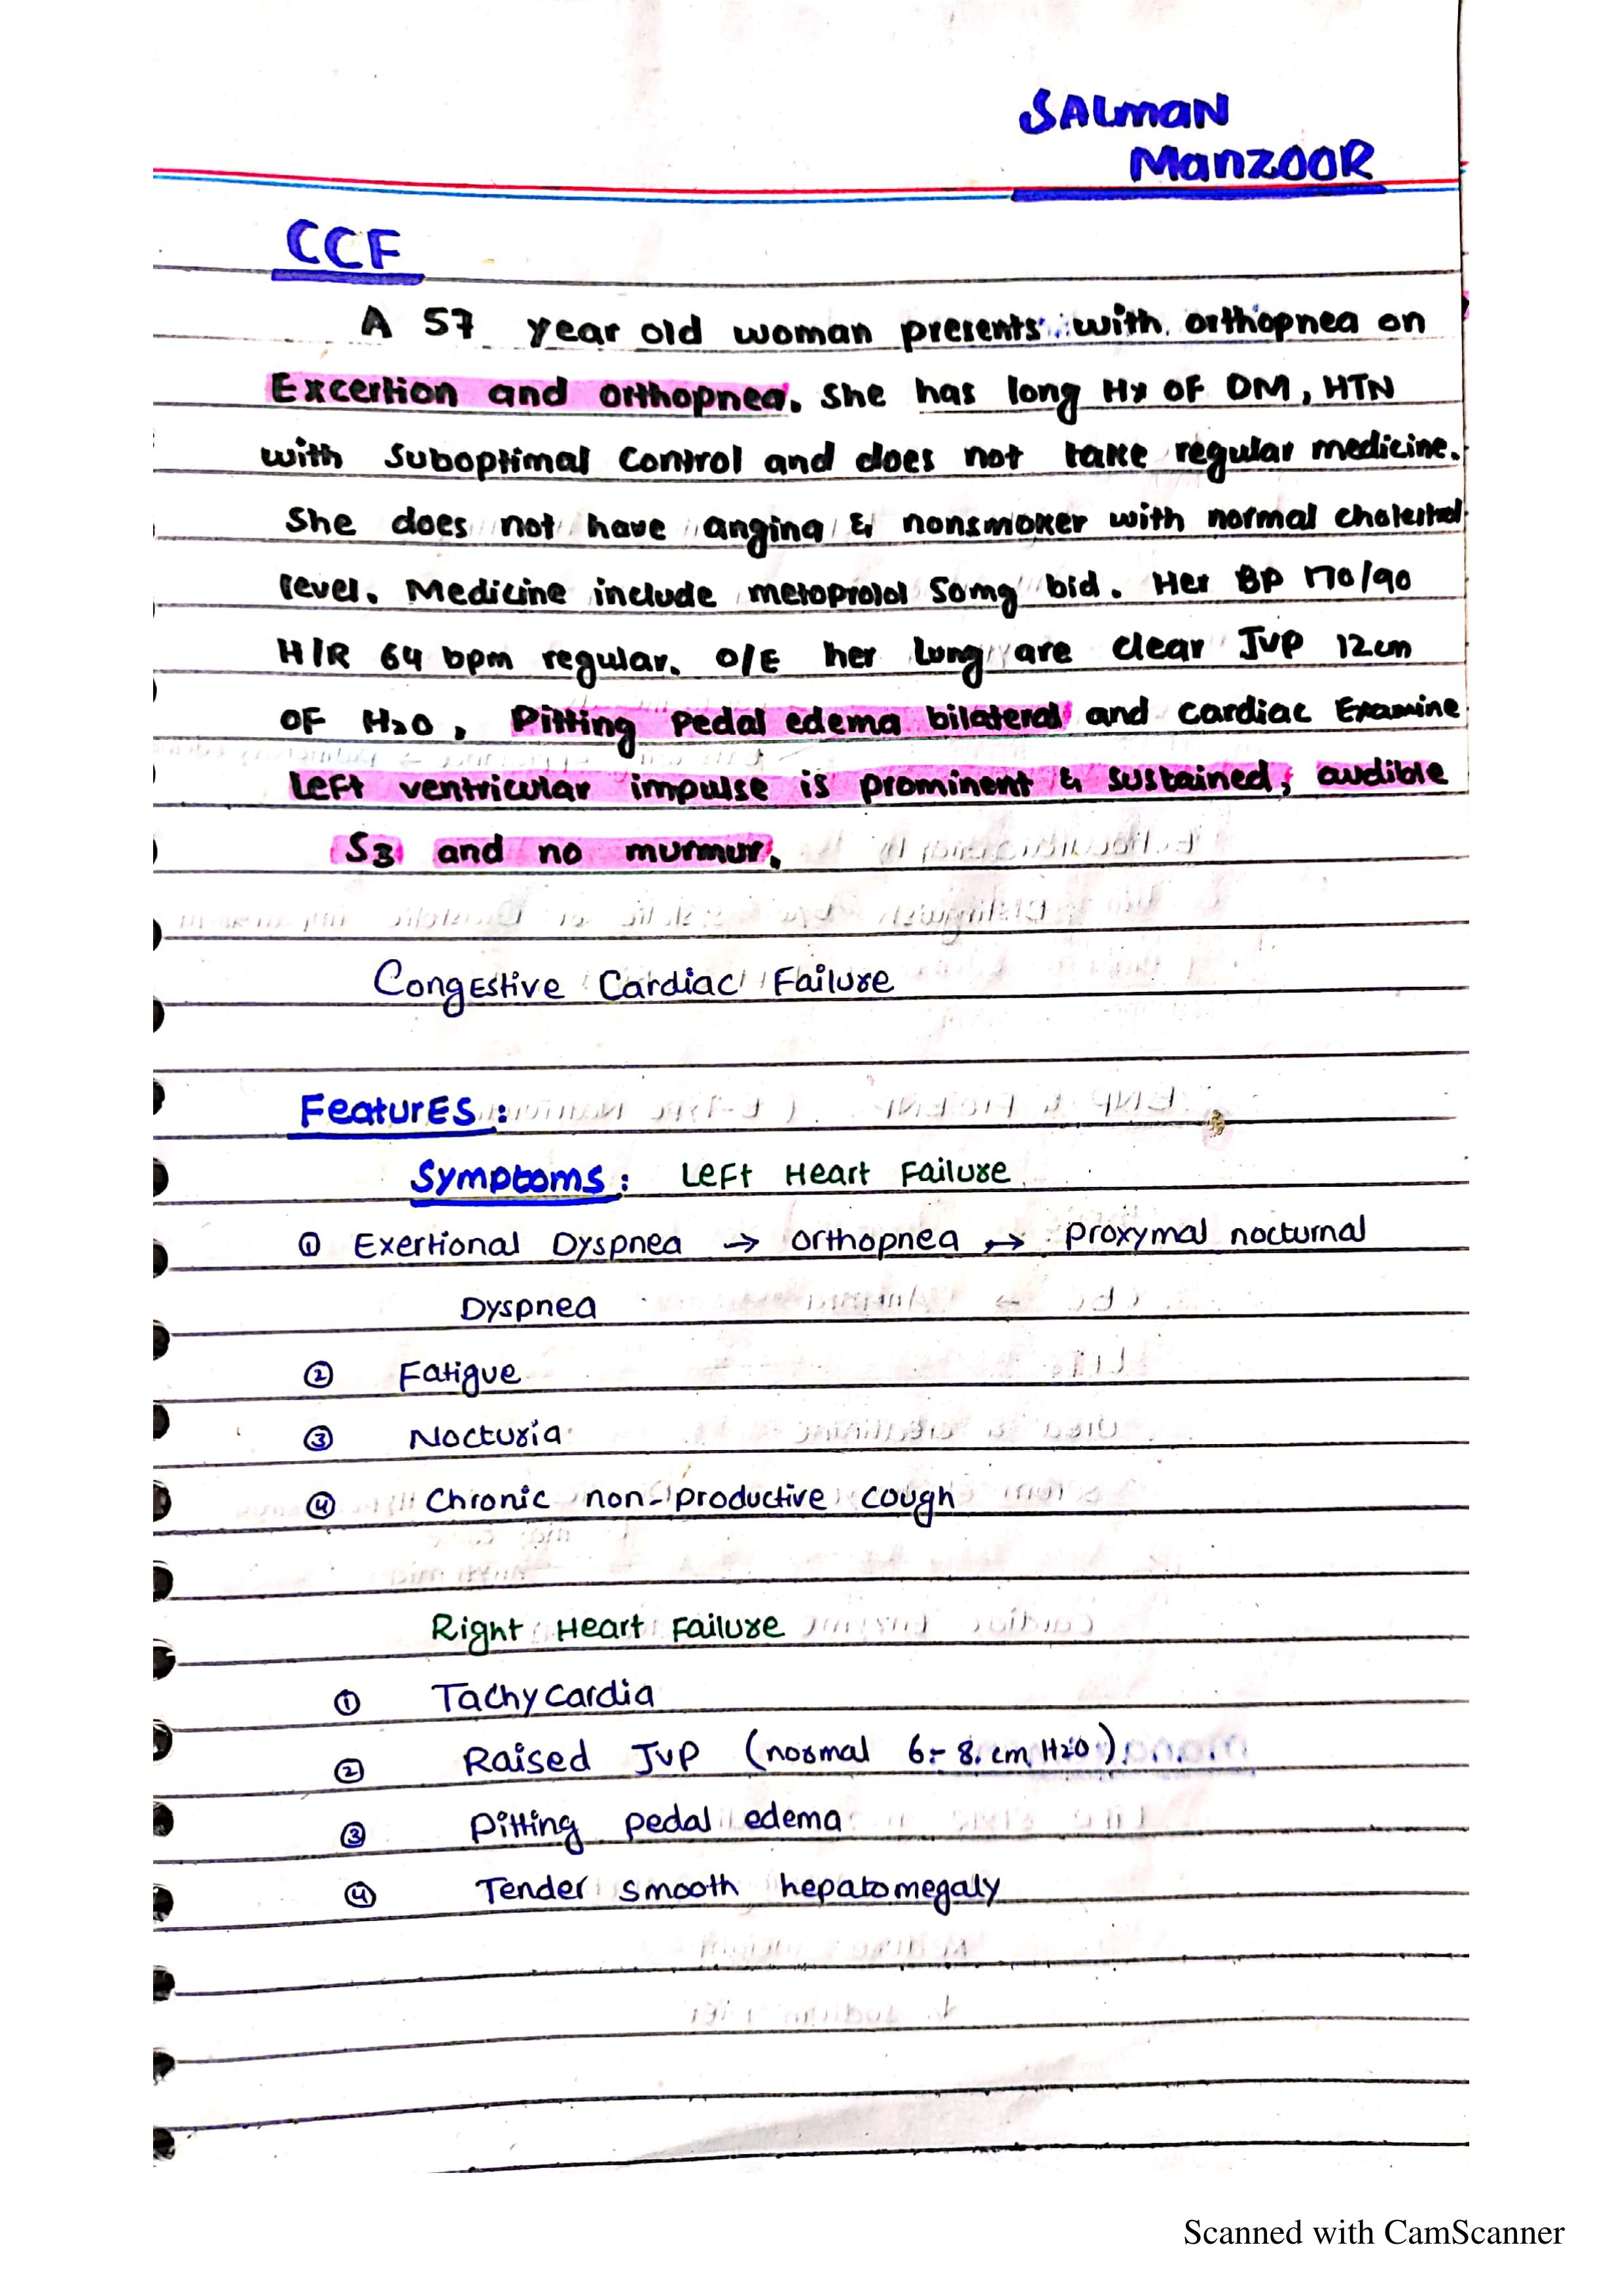 SALMAN
MANZOOR
CCF
A 57 year old woman presents with orthopnea on
Excertion and orthopnea. She has long Hx OF DM, HTN
with Suboptimal Control and does not take regular medicine.
She does not have angina & nonsmoker with normal cholestrol
level. Medicine include metoprolol 50mg bid. Her BP 170/90
H/R 64 bpm regular. O/E her Lung are clear JVP 12cm
OF H2O, Pitting Pedal edema bilateral and cardiac Examine
Left ventricular impulse is prominent & sustained, audible
S3 and no murmur.
Congestive Cardiac Failure
Features:
Symptoms: Left Heart Failure
① Exertional Dyspnea → orthopnea → Proxymal nocturnal
Dyspnea
② Fatigue
③ Nocturia
④ Chronic non-productive cough
Right Heart Failure
① Tachycardia
② Raised JVP (normal 6-8 cm H2O)
③ Pitting pedal edema
④ Tender smooth hepatomegaly
Scanned with CamScanner